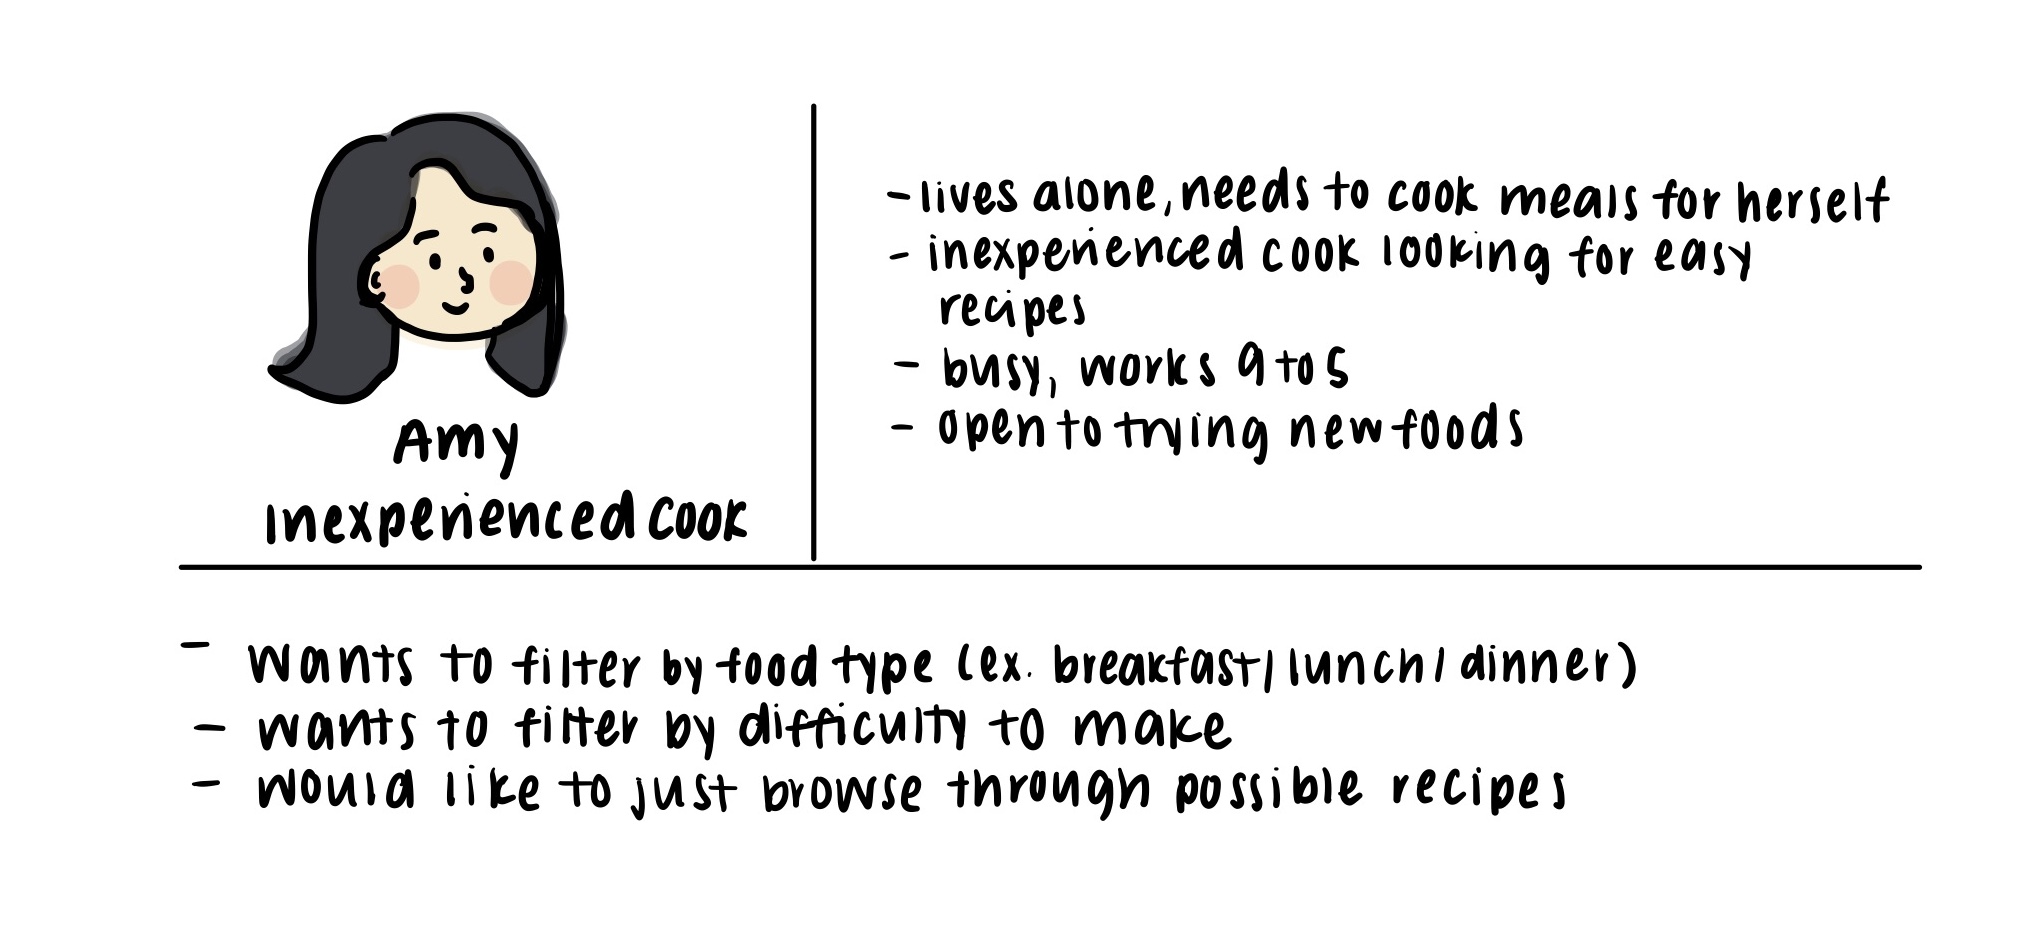 Amy
Inexperienced cook
- lives alone, needs to cook meals for herself
- inexperienced cook looking for easy
recipes
- busy, works 9 to 5
- open to trying new foods
- wants to filter by food type (ex. breakfast/lunch/dinner)
- wants to filter by difficulty to make
- would like to just browse through possible recipes